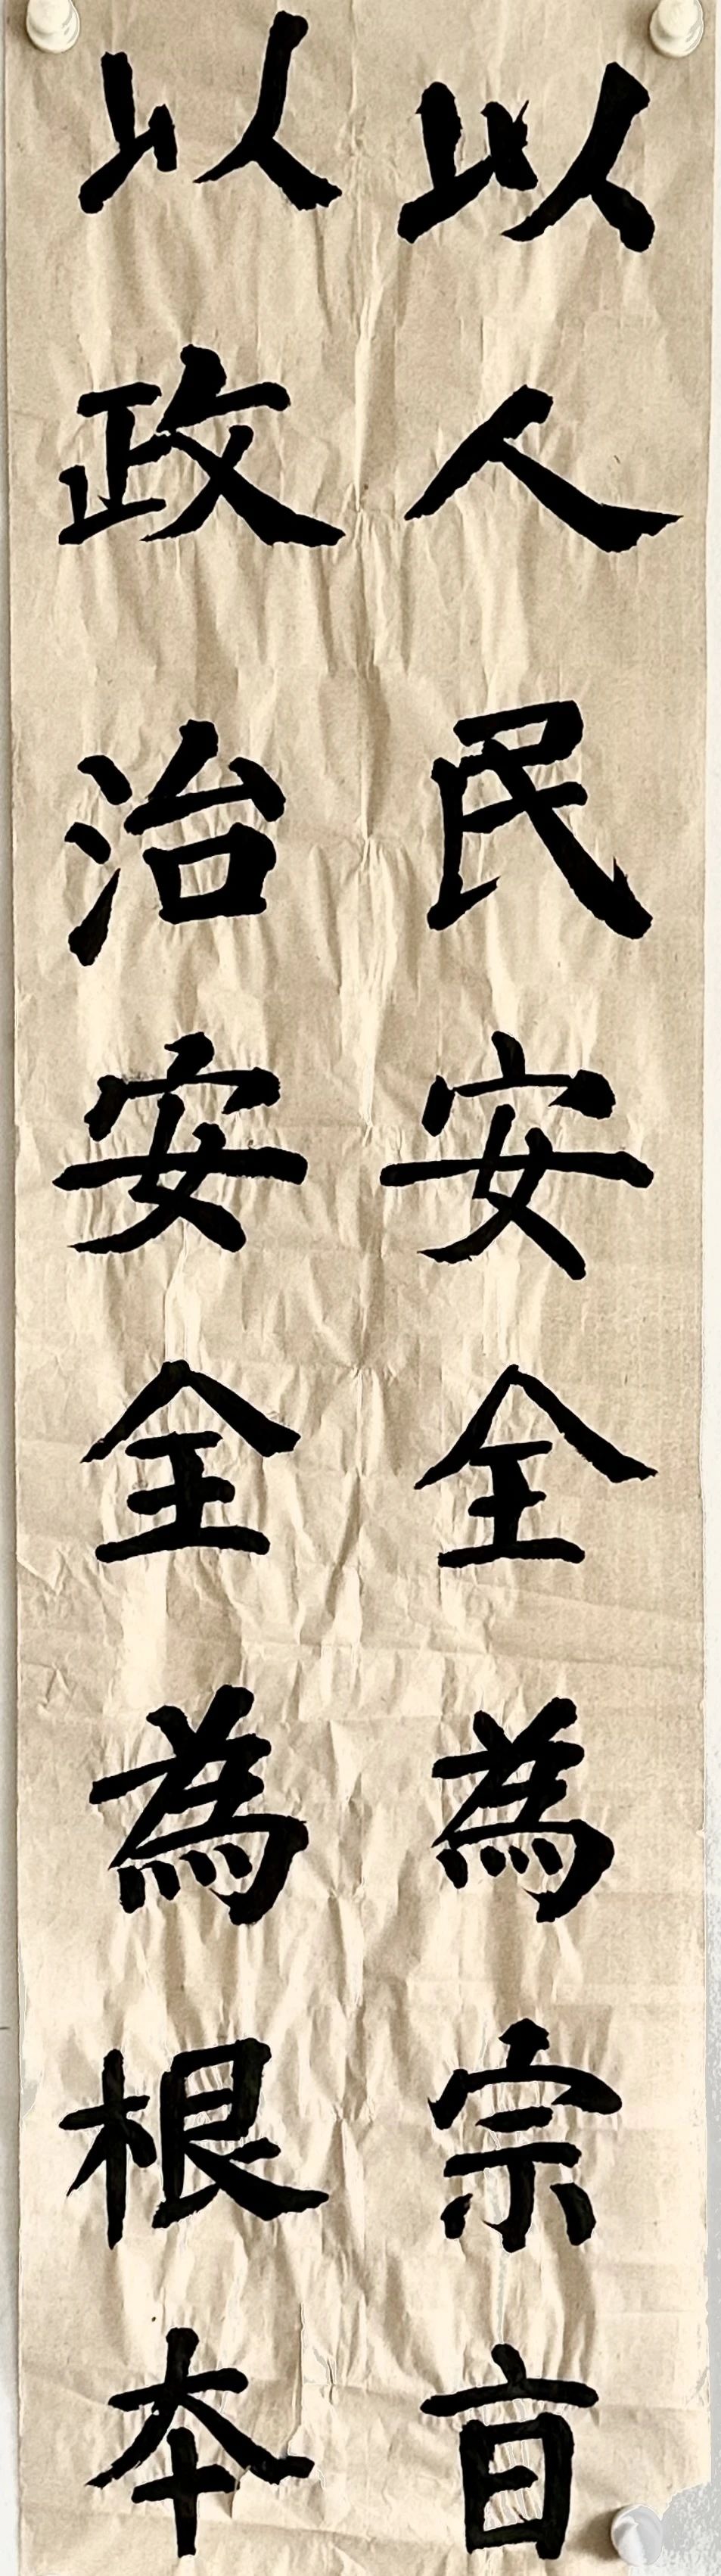 以人民安全為宗旨
以政治安全為根本